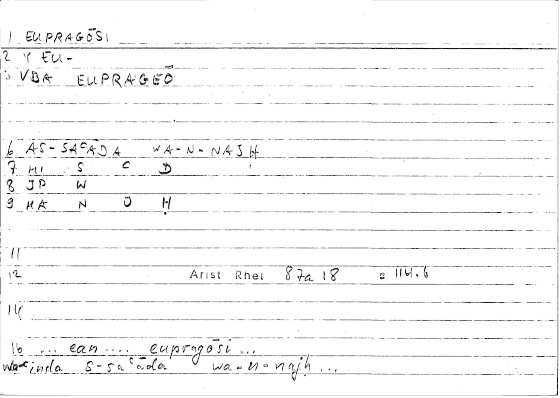 1 EUPRAGŌSI
2 Y EU-
3 VBA EUPRAGEŌ
6 AS-SAᶜĀDA WA-N-NAJḤ
7 MI S C D
8 JP W
9 MA N J Ḥ
11
12 Arist Rhet 87a 18 = 116.6
14
16 ... ean .... eupragōsi ...
ᶜinda s-saᶜāda wa-n-najḥ ...